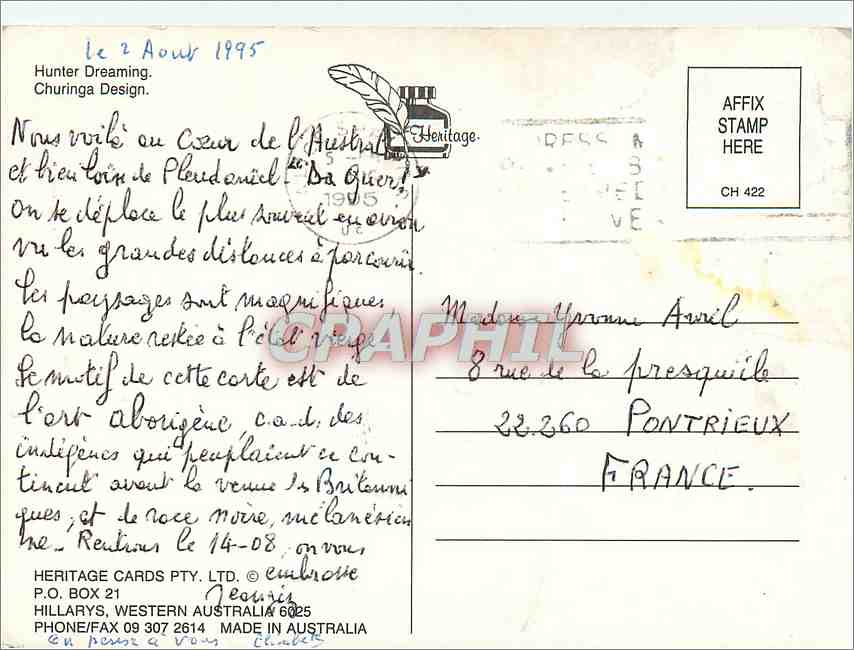 le 2 Aout 1995
Hunter Dreaming.
Churinga Design.
Heritage.
AFFIX
STAMP
HERE
CH 422
1995
Nous voilà au Cœur de l'Austral
et bien loin de Pleudaniel
on se déplace le plus souvent en avion
vu les grandes distances à parcourir.
Les paysages sont magnifiques
la nature restée à l'état vierge
Le motif de cette carte est de
l'art aborigène, c.a.d. des
indigènes qui peuplaient ce con-
tinent avant la venue des Britanni
ques, et de race noire, mélanésien
ne. Rentrons le 14-08, on vous
embrasse
Madame Yvonne Avril
8 rue de la presqu'île
22.260 PONTRIEUX
FRANCE.
CPAPHIL
HERITAGE CARDS PTY. LTD. ©
P.O. BOX 21
HILLARYS, WESTERN AUSTRALIA 6025
PHONE/FAX 09 307 2614 MADE IN AUSTRALIA
on pense à vous Elisabeth